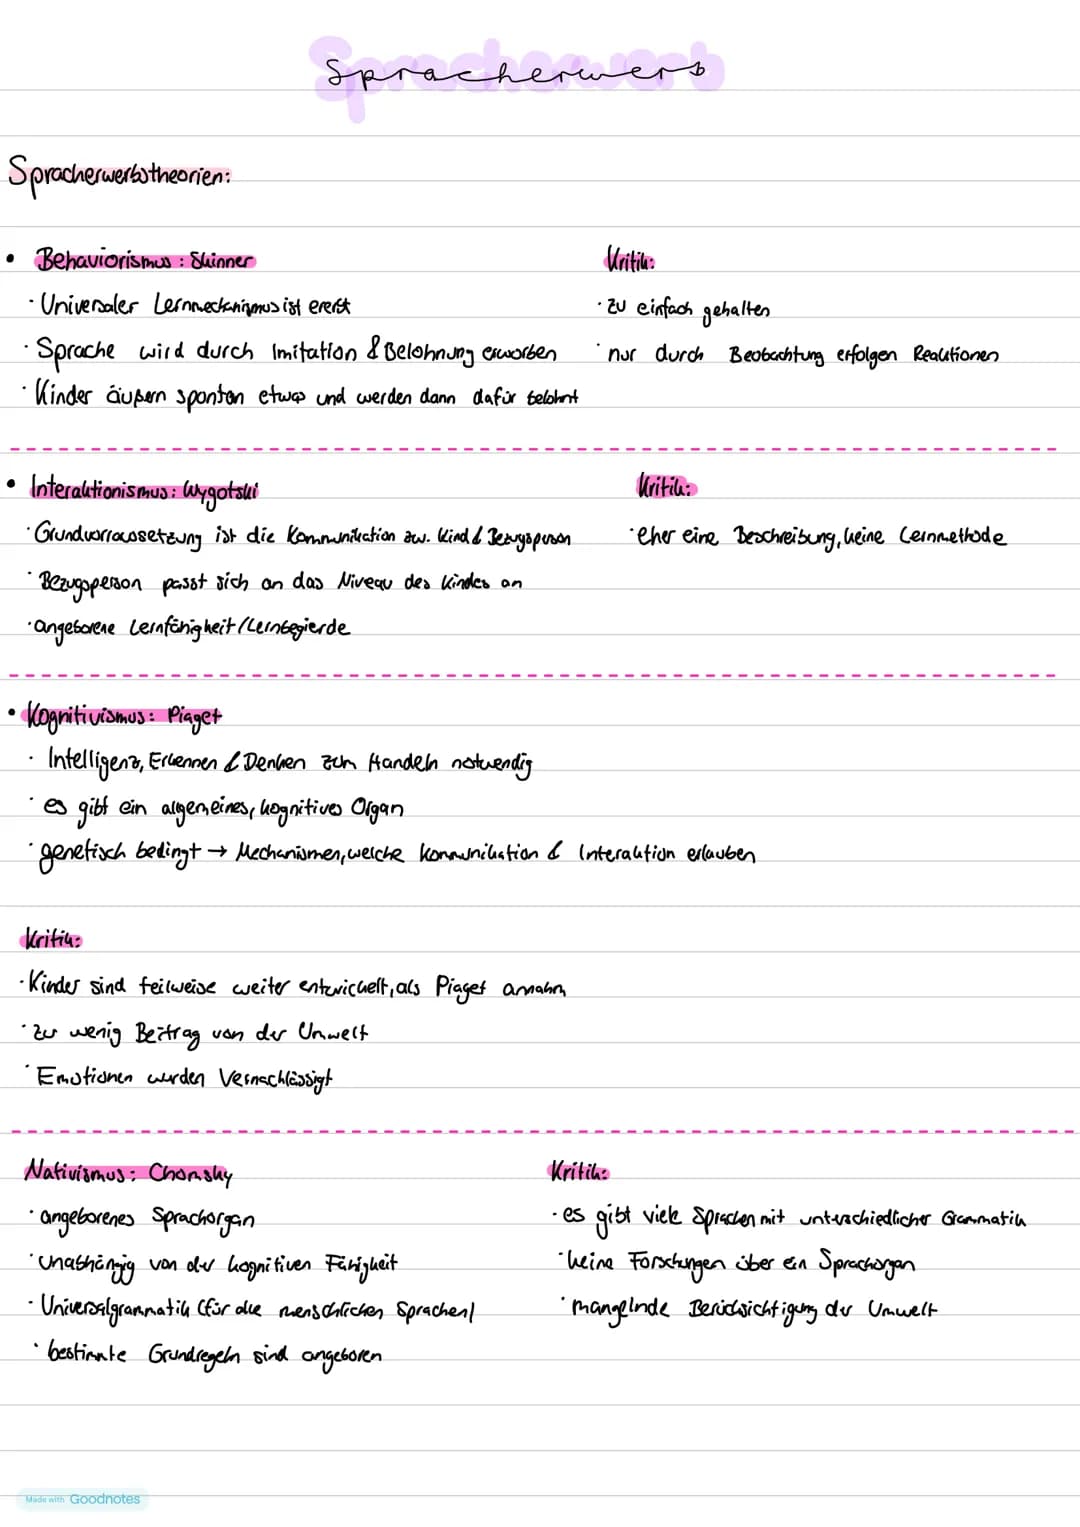 Spracherwerb
Spracherwerbstheorien:
• Behaviorismus: Skinner
· Universaler Lernmechanismus ist ererbt
· Sprache wird durch Imitation & Belohnung erworben
· Kinder äußern spontan etwas und werden dann dafür belohnt
Kritik:
· zu einfach gehalten
· nur durch Beobachtung erfolgen Reaktionen
• Interaktionismus: Wygotski
· Grundvorraussetzung ist die Kommunikation zw. Kind & Bezugsperson
· Bezugsperson passt sich an das Niveau des Kindes an
· angeborene Lernfähigkeit/Lernbegierde
Kritik:
· eher eine Beschreibung, keine Lernmethode
• Kognitivismus: Piaget
· Intelligenz, Erkennen & Denken zum Handeln notwendig
· es gibt ein allgemeines, kognitives Organ
· genetisch bedingt → Mechanismen, welche Kommunikation & Interaktion erlauben
Kritik:
· Kinder sind teilweise weiter entwickelt, als Piaget annahm
· zu wenig Beitrag von der Umwelt
· Emotionen wurden vernachlässigt
Nativismus: Chomsky
· angeborenes Sprachorgan
· unabhängig von der kognitiven Fähigkeit
· Universalgrammatik (für alle menschlichen Sprachen)
· bestimmte Grundregeln sind angeboren
Kritik:
· es gibt viele Sprachen mit unterschiedlicher Grammatik
· keine Forschungen über ein Sprachorgan
· mangelnde Berücksichtigung der Umwelt
Made with Goodnotes